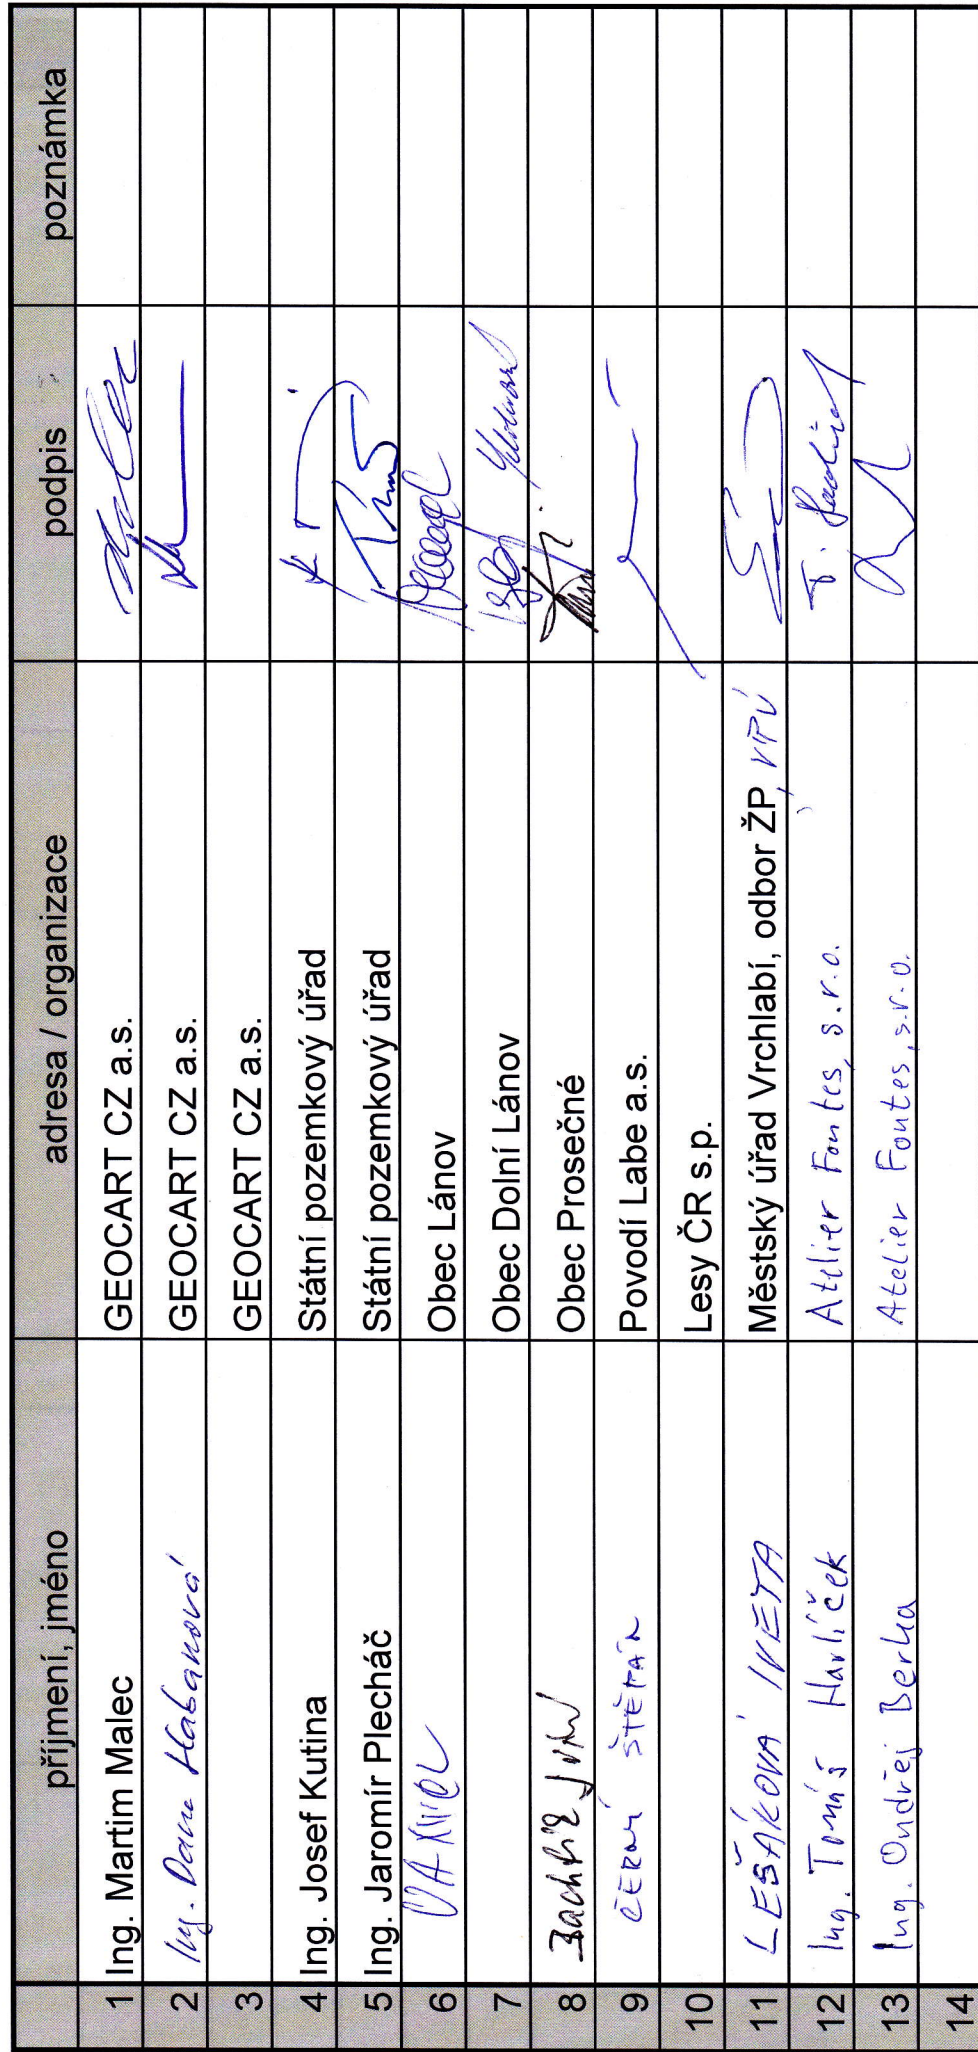 příjmení, jméno adresa / organizace podpis poznámka
1 Ing. Martim Malec GEOCART CZ a.s. Malec
2 Ing. Dana Habanová GEOCART CZ a.s.
3 GEOCART CZ a.s.
4 Ing. Josef Kutina Státní pozemkový úřad
5 Ing. Jaromír Plecháč Státní pozemkový úřad
6 Obec Lánov
7 Obec Dolní Lánov
8 Obec Prosečné
9 ČERNÝ ŠTĚPÁN Povodí Labe a.s.
10 Lesy ČR s.p.
11 LEŠÁKOVÁ IVETA Městský úřad Vrchlabí, odbor ŽP, VPÚ
12 Ing. Tomáš Havlíček Atelier Fontes, s.r.o. T. Havlíček
13 Ing. Ondřej Berka Atelier Fontes, s.r.o.
14